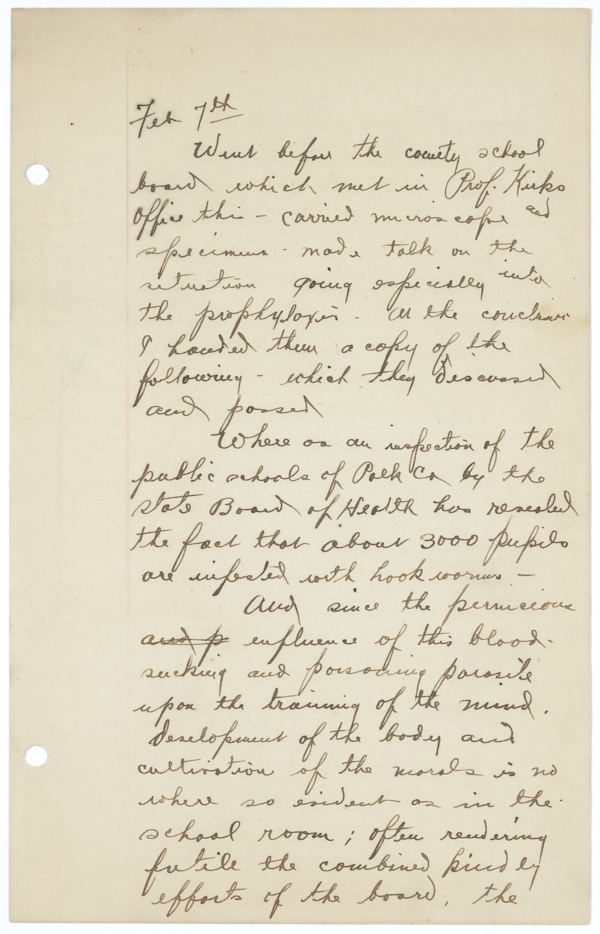 Feb 7th
Went before the county school
board which met in Prof. Kirks
Office this - carried microscope and
specimens - made talk on the
situation going especially into
the prophylaxis - At the conclusion
I handed them a copy of the
following - which they discussed
and passed
Where as an inspection of the
public schools of Polk Co by the
State Board of Health has revealed
the fact that about 3000 pupils
are infested with hook worms -
And since the pernicious
and p influence of this blood-
sucking and poisoning parasite
upon the training of the mind.
Development of the body and
cultivation of the morals is no
where so evident as in the
school room; often rendering
futile the combined
efforts of the board, the